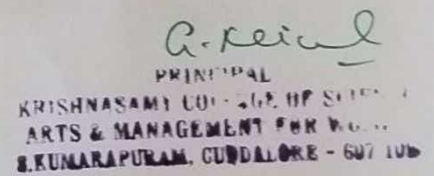 PRINCIPAL
KRISHNASAMY COLLEGE OF
ARTS & MANAGEMENT FOR
S.KUMARAPURAM, CUDDALORE - 607